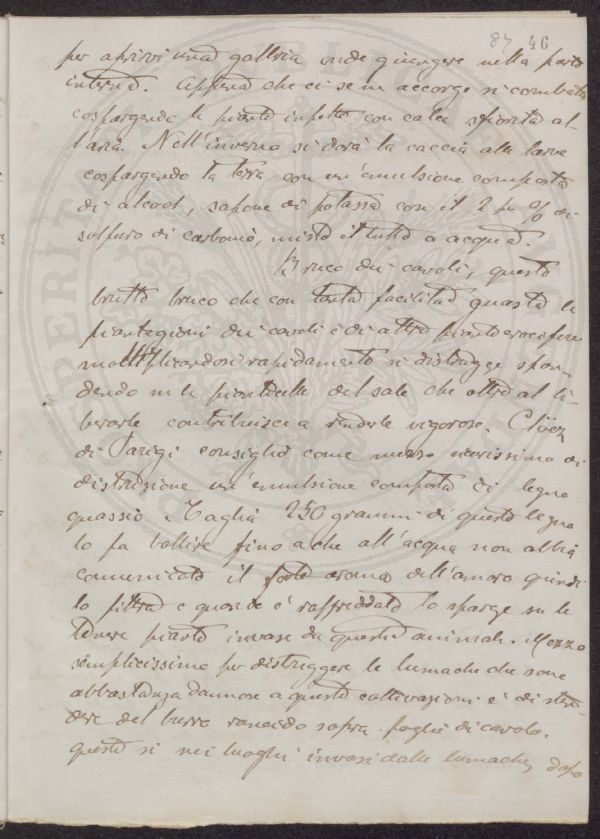 87 46
per aprirvi una galleria onde giungere nella parte
interna. Appena che ci se ne accorge si combatte
cospargendo le piante infette con calce sfiorita al-
l'aria. Nell'inverno si darà la caccia alle larve
cospargendo la terra con un'emulsione composta
di alcool, sapone di potassa con il 2 per % di
solfuro di carbonio, misto il tutto a acqua.
Bruco dei cavoli, questo
brutto bruco che con tanta facilità guasta le
piantegioni dei cavoli e di altre piante crocifere
moltiplicandosi rapidamente si distrugge span-
dendo su le pianticelle del sale che oltre al li-
berarle contribuisce a renderle vigorose. Clöez
di Parigi consiglia come mezzo sicurissimo di
distruzione un'emulsione composta di legno
quassio. Taglia 250 grammi di questo legno
lo fa bollire fino a che all'acqua non abbia
comunicato il forte aroma dell'amaro quindi
lo filtra e quando è raffreddato lo sparge su le
tenere piante invase da questi animali. Mezzo
semplicissimo per distruggere le lumache che sono
abbastanza dannose a queste coltivazioni è di sten-
dere del burro rancido sopra foglie di cavolo,
questo si nei luoghi invasi dalle lumache, dopo